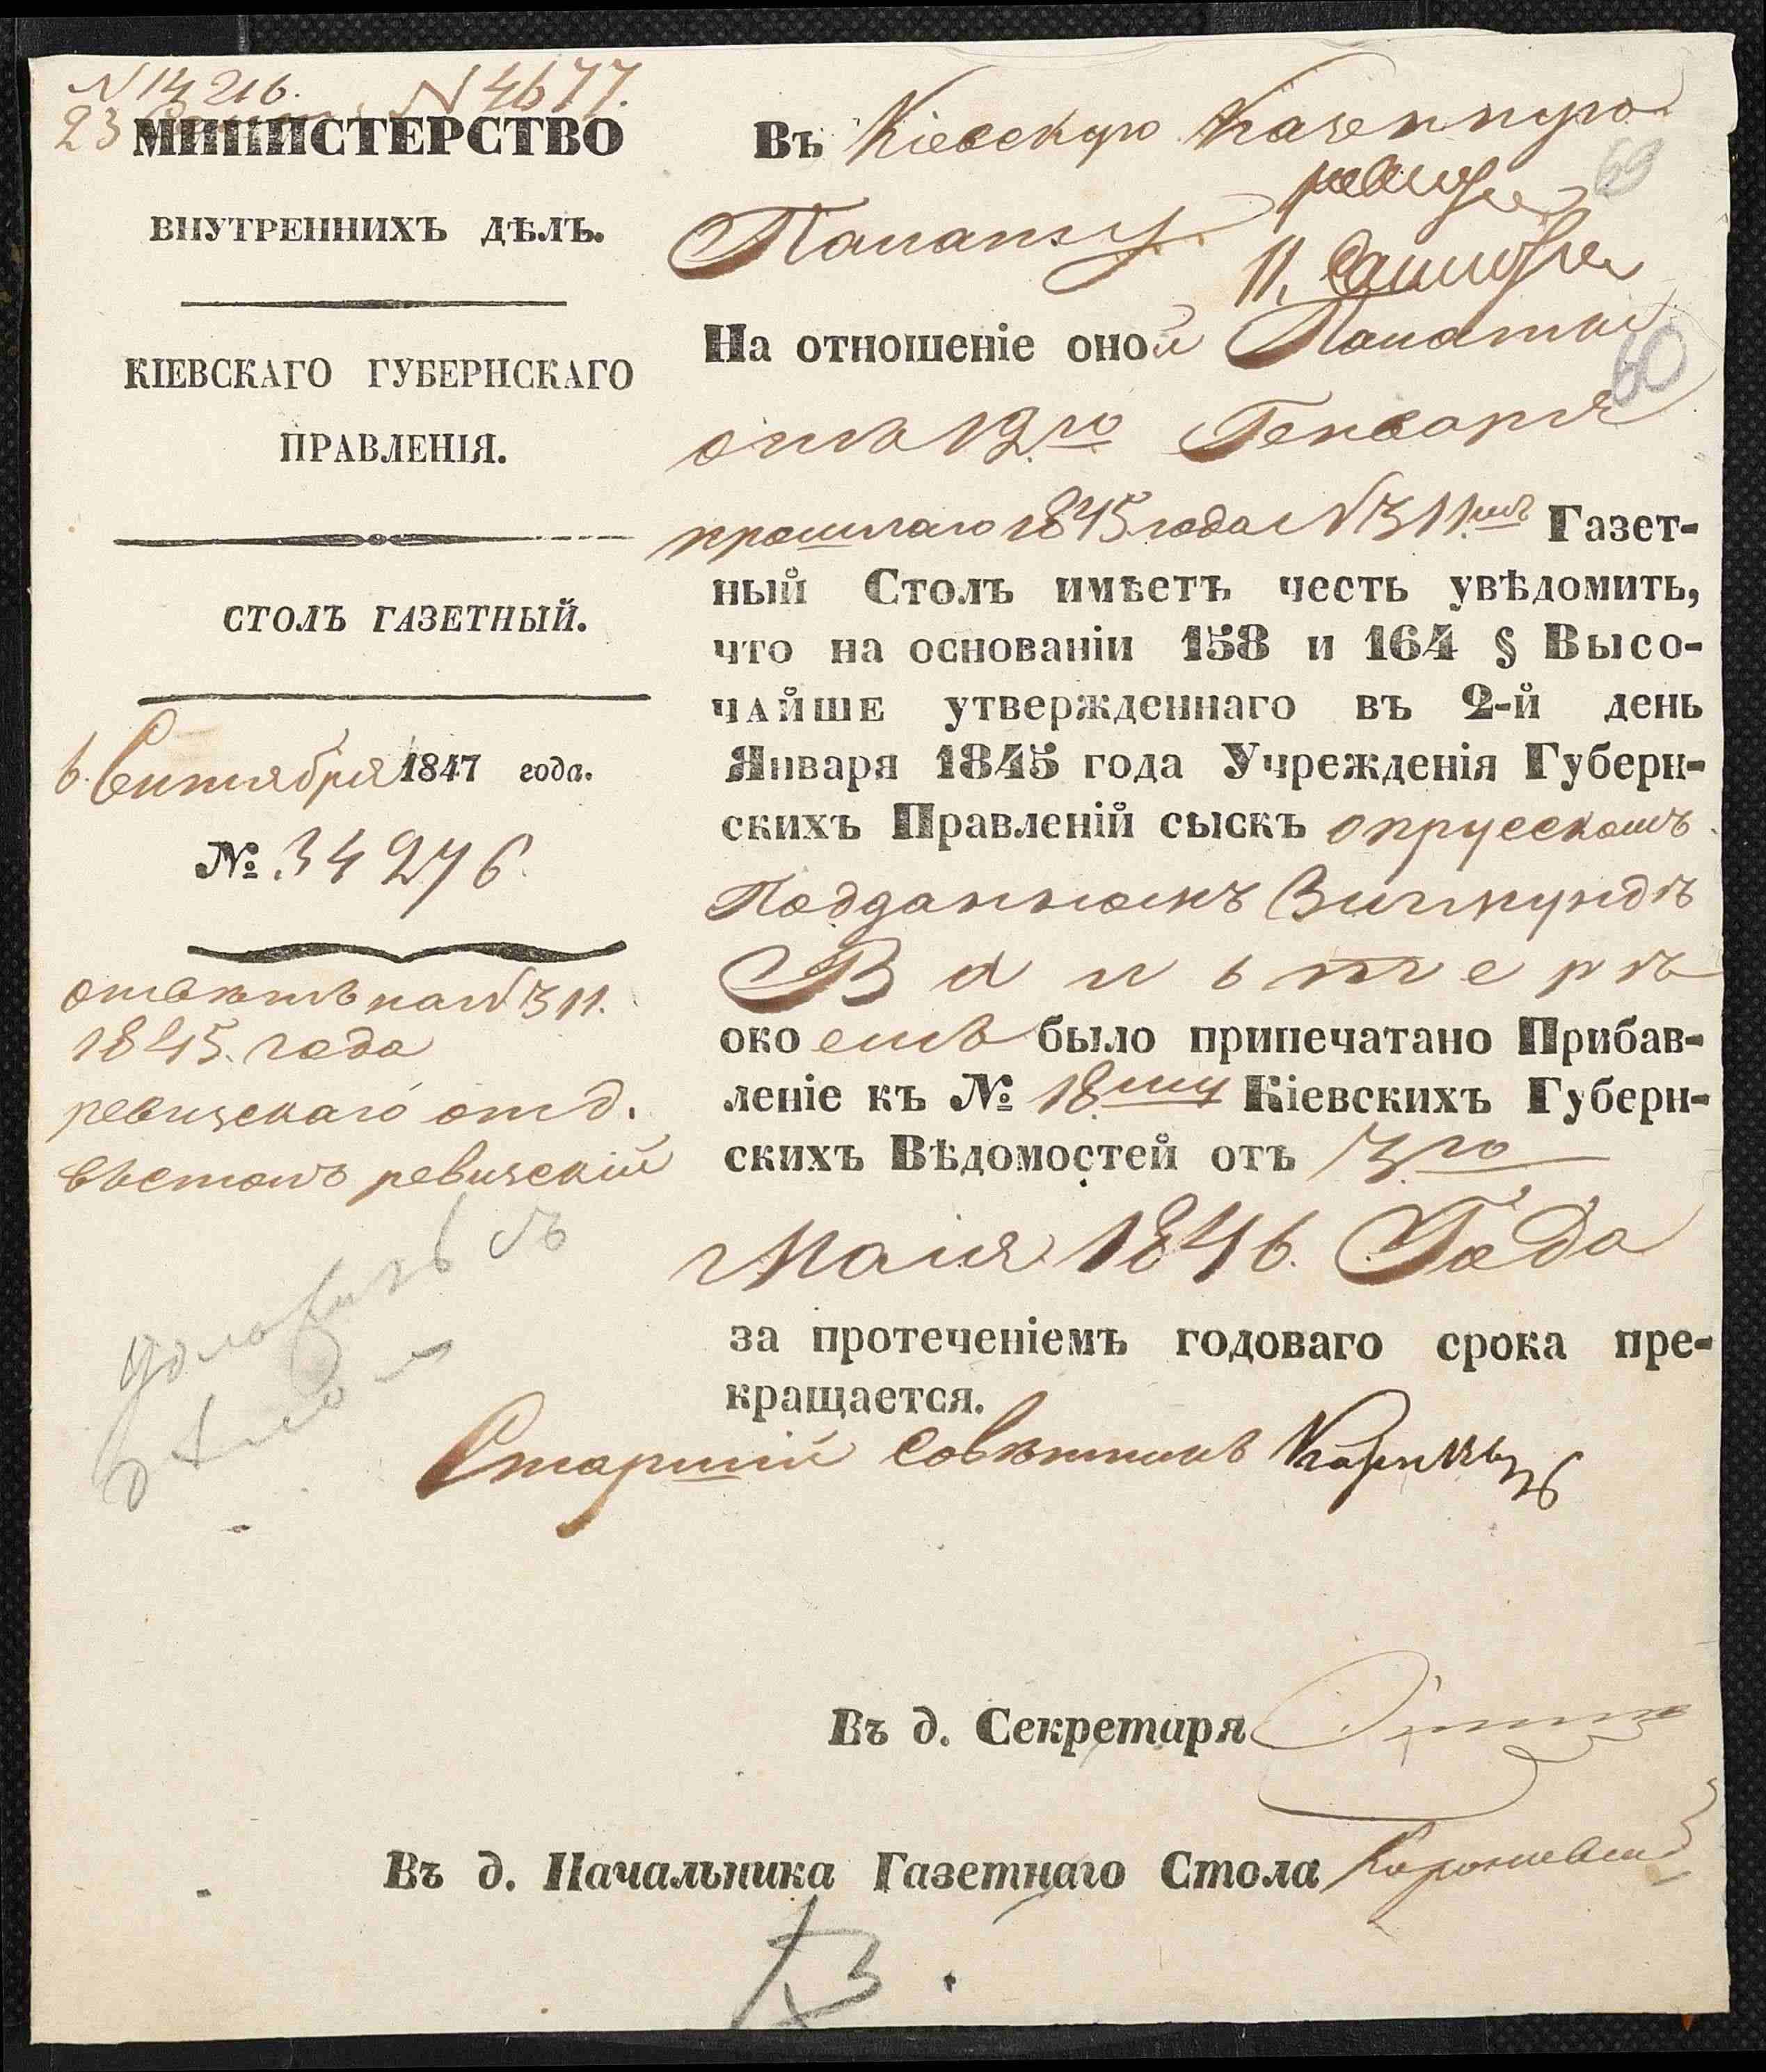 N 14216. N 4677.
23
МИНИСТЕРСТВО
ВНУТРЕННИХЪ ДѢЛЪ.
КІЕВСКАГО ГУБЕРНСКАГО
ПРАВЛЕНІЯ.
СТОЛЪ ГАЗЕТНЫЙ.
6. Сентября 1847 года.
№. 34276.
ответъ на N 311.
1845. года
ревизскаго отд.
въ столъ ревизскій
Въ Кіевскую Казенную
69
Палату
11. Сентября
На отношеніе оной Палаты
60
отъ 12го Генваря
прошлаго 1845 года N 311.мъ Газет-
ный Столъ имѣетъ честь увѣдомить,
что на основаніи 158 и 164 § Высо-
чайше утвержденнаго въ 2-й день
Января 1845 года Учрежденія Губерн-
скихъ Правленій сыскъ о прусскомъ
Подданномъ Зигмундѣ
Вальтерѣ
око емъ было припечатано Прибав-
леніе къ № 18.му Кіевскихъ Губерн-
скихъ Вѣдомостей отъ 3го
Маія 1846. Года
за протеченіемъ годоваго срока пре-
кращается.
Старшій Совѣтникъ
Въ д. Секретаря
Въ д. Начальника Газетнаго Стола